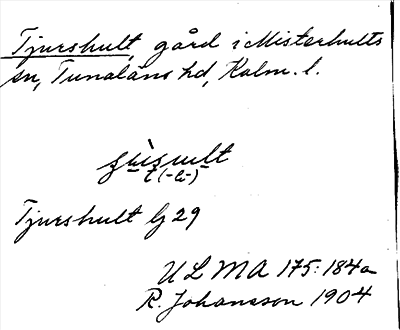 Tjurshult, gård i Misterhults
sn, Tunaläns hd, Kalm. l.
t (-a-)
Tjurshult lj 29
ULMA 175:184a
R. Johansson 1904